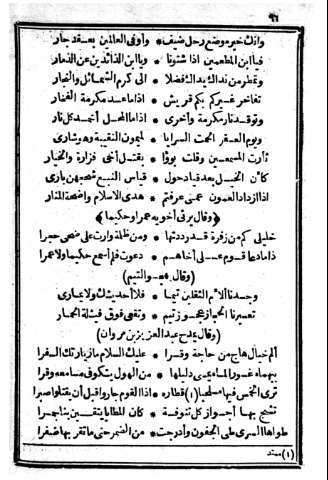 ٩٦
وإنك خير موضع رحل ضيف * وأوفى العالمين بعقد جار
فيا ابن المطعمين اذا شتونا * ويا ابن الذائدين عن الذمار
وتمطر من نداك يداك فضلا * الى كرم الشمائل والنجار
تفاخر غيركم بكم قريش * اذا ما عد مكرمة الفخار
وتوقد نار مكرمة وأخرى * اذا ما المحل أخمد كل نار
ويوم العقر ألحمت السرايا * لميمون النقيبة وهو شارى
ثأرت المسمعين وقلت بوؤا * بقتل أخى فزارة والخيار
كأن الخيل بعد قياد حول * قياس النبع شهبهن بارى
اذا زاد العمون عمى عرفتم * هدى الاسلام واضحة المنار
﴿وقال يرثى أخويه عمرا وحكيما﴾
خليلى كم من زفرة قد رددتها * ومن ظلمة وارت على ضحى حمرا
اذا ما دعا قوم على أخاهم * دعوت فلم أسمع حكيما ولا عمرا
(وقال يهجو التيم)
وجدنا ألأم الثقلين تيما * فلا أحديثك ولا يمارى
تعصبنا الخيار عجوز تيم * وتفعى فوق فيشلة الحمار
(وقال يمدح عبد العزيز بن مروان)
ألم خيال هاج من حاجة وقرا * عليك السلام ما زيارتك السفرا
بيهماء غور الماء يمسى دليلها * من الهول يشكو فى مسامعه وقرا
ترى الخمس فيها مسلحبا (١) قطاره * اذا القوم جاروا قيل أن يقتلوا صبرا
تشج بها أجواز كل تنوفة * كأن المطايا يتقين بنا جمرا
طواها السرى طى الجفون وأدرجت * من الضمر حتى ما تقر بها ضفرا
(١) ممتد